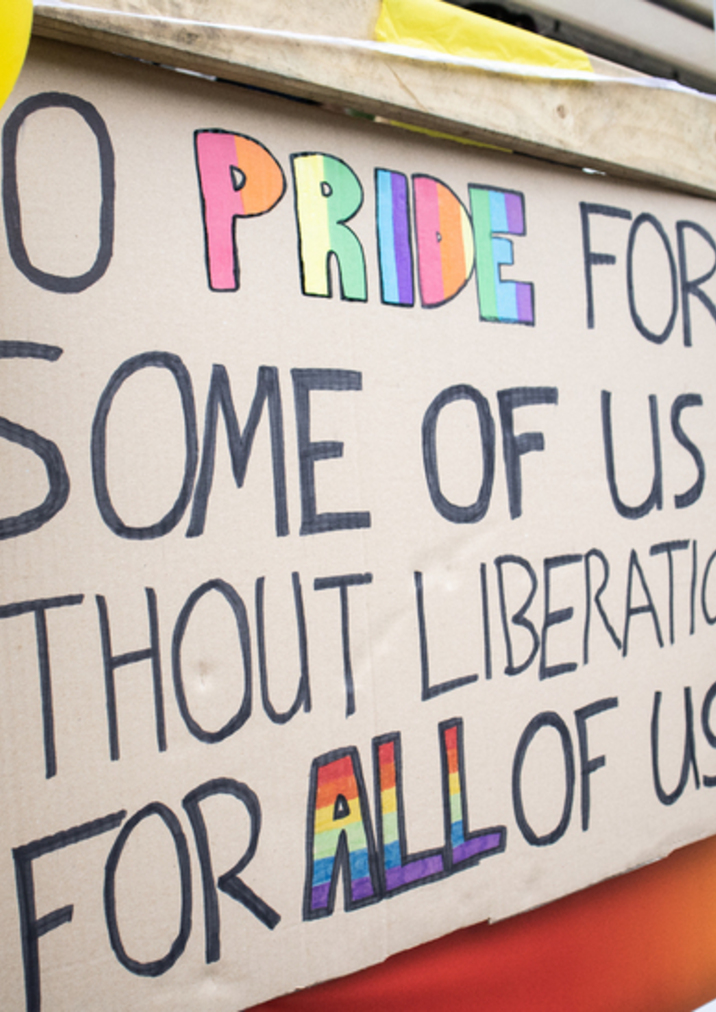 O PRIDE FOR
SOME OF US
THOUT LIBERATIO
FOR ALL OF US